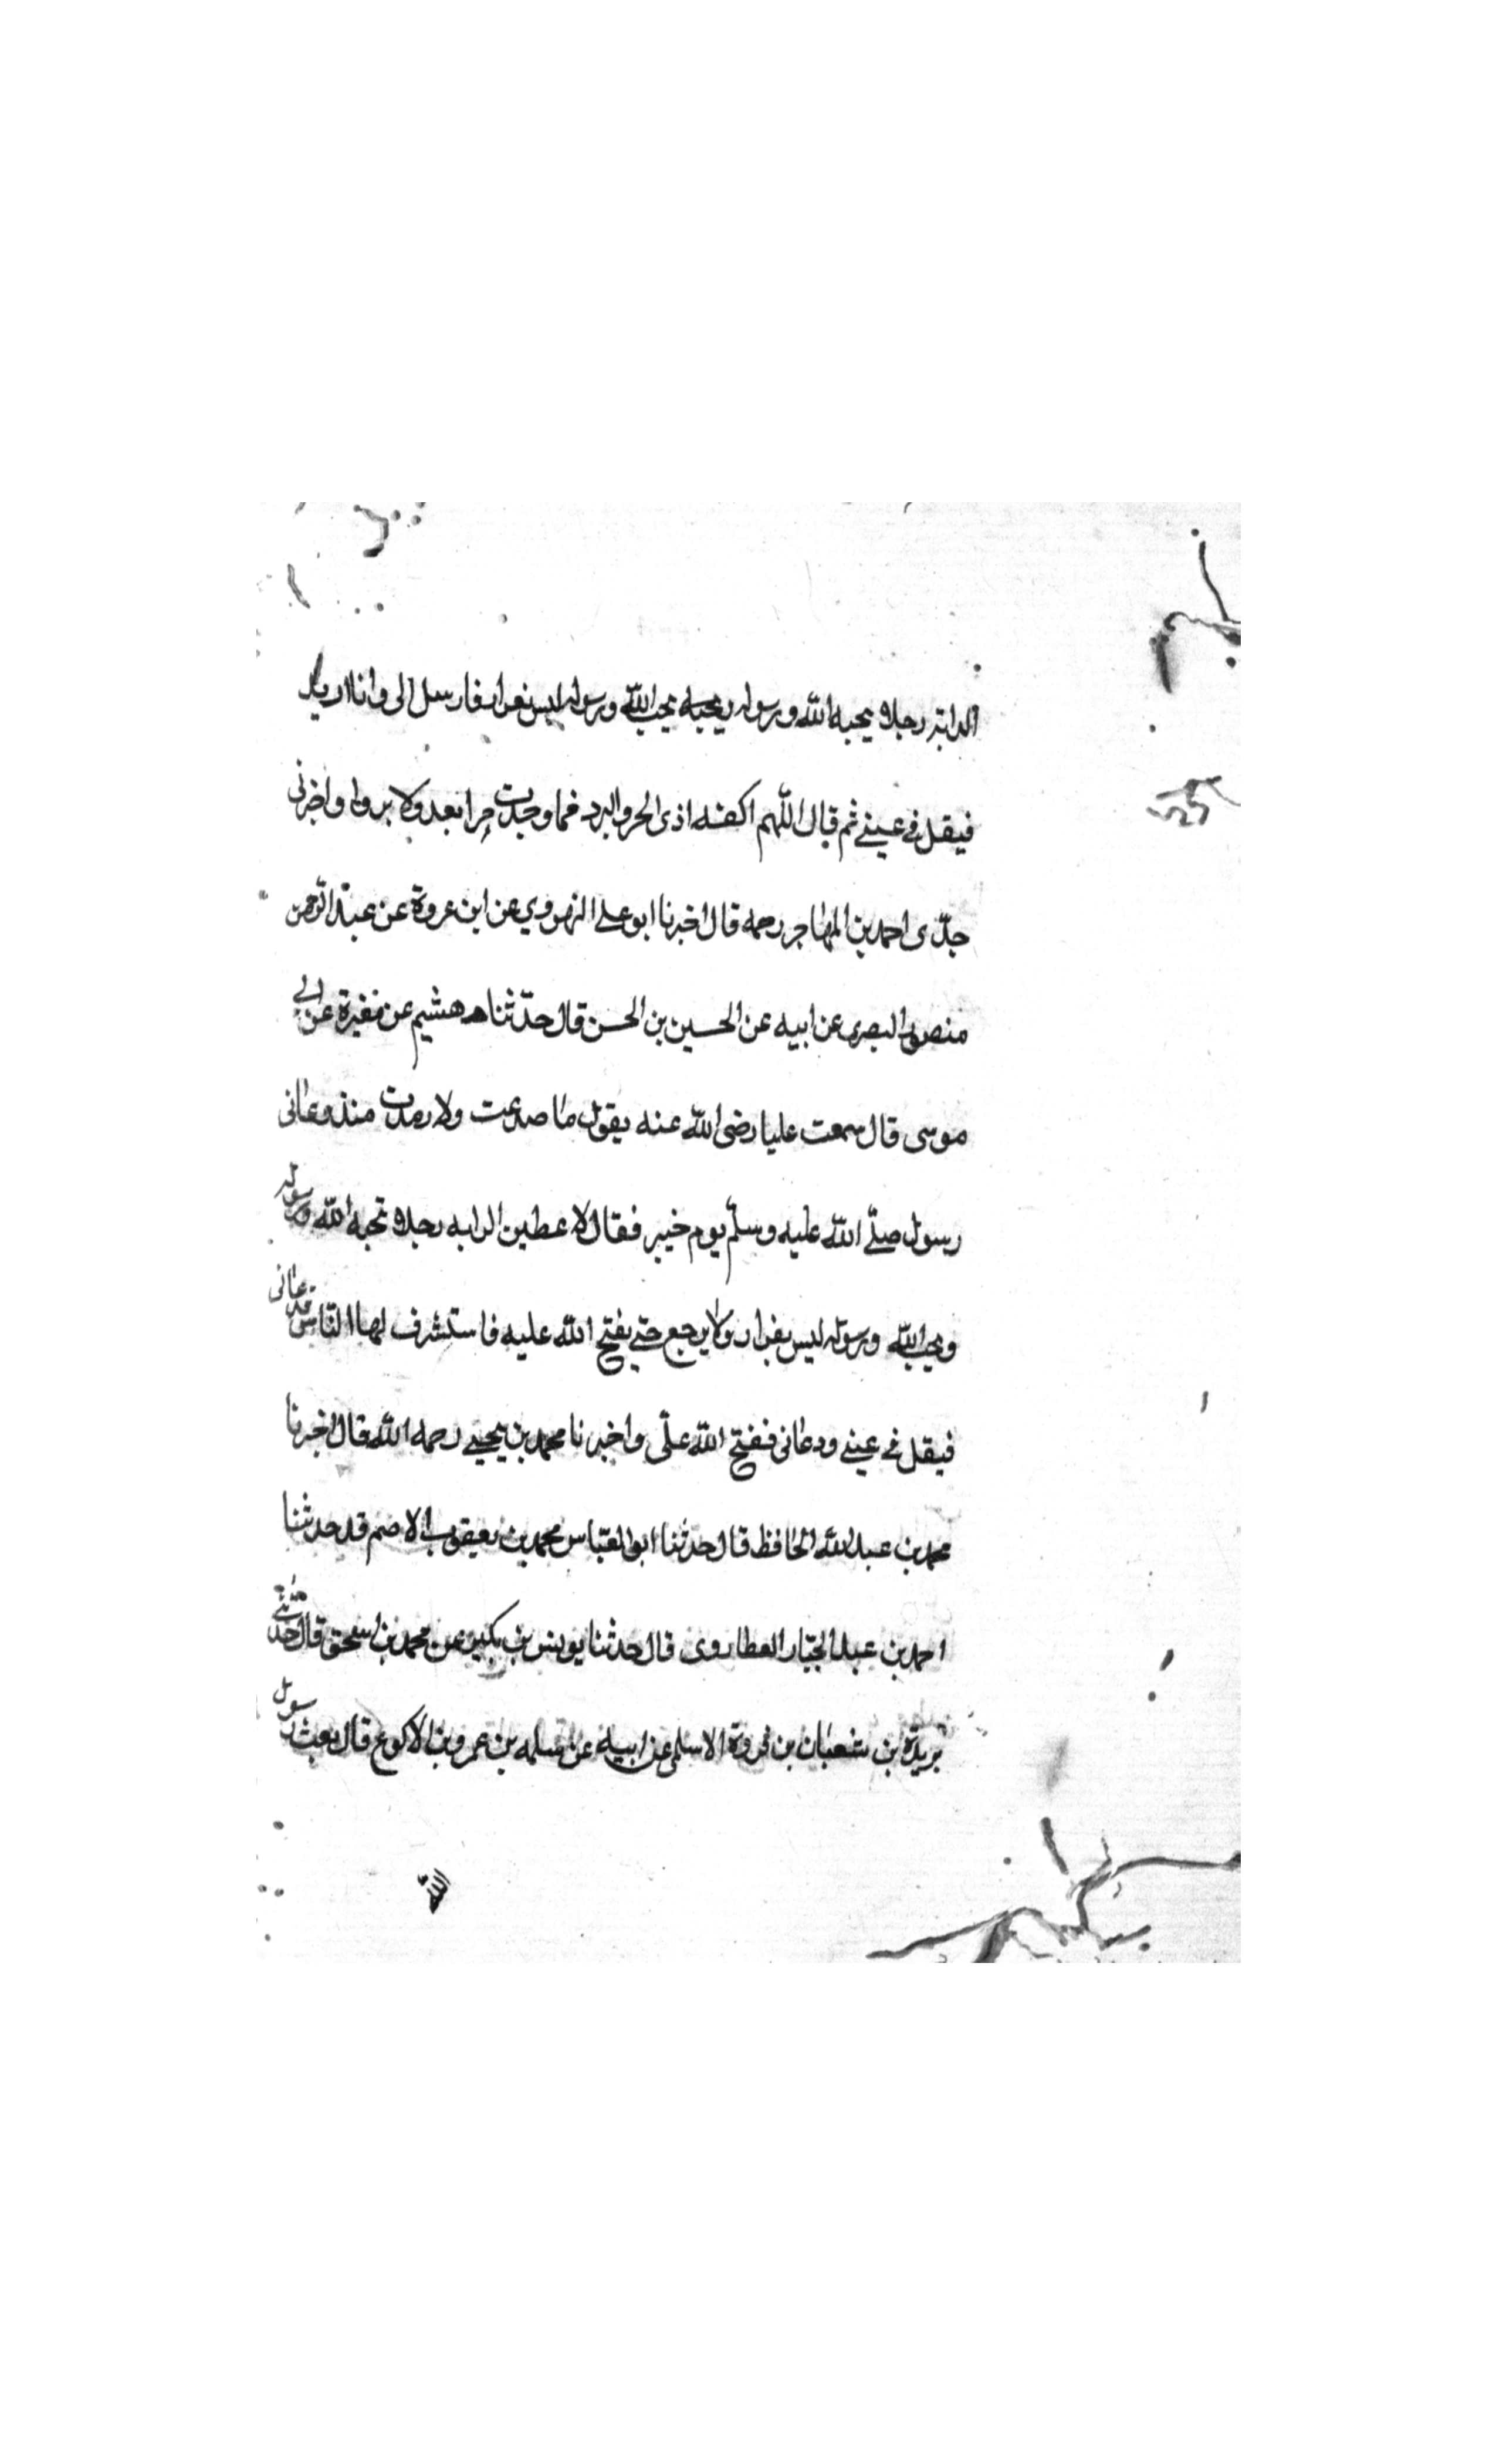 الرابه رجلا يحبه الله ورسوله ويحبه يحب الله ورسوله ليس بفرار فارسل الى وانا ارمد
فيقل في عينے ثم قال اللهم اكفنه اذى الحر والبرد فما وجدت حرا بعد ولا بردا واخبرنى
جدّى احمد بن المهاجر رحمه قال اخبرنا ابو على الهروي عن ابن عروة عن عبد الرحمن
منصور البصرى عن ابيه عن الحسين بن الحسن قال حدّثنا هشيم عن مغيرة عن ابي
موسى قال سمعت عليا رضى الله عنه يقول ما صدعت ولا رمدت منذ دعانى
رسول صلّے الله عليه وسلّم يوم خيبر فقال لاعطين الرابه رجلا تحبه الله ورسوله
ويحب الله ورسوله ليس بفرار ولا يرجع حتے يفتح الله عليه فاستشرف لها الناس فدعانى
فيقل في عينے ودعانى ففتح الله علّى واخبرنا محمد بن يحيى رحمه الله قال اخبرنا
محمد بن عبد الله الحافظ قال حدثنا ابو العبّاس محمد بن يعقوب الاصم قد حدثنا
احمد بن عبد الجبّار العطاردى قال حدثنا يونس بن بكير عن محمد بن اسحق قال حدّثنے
بريدة بن شعبان بن فروة الاسلمى عن ابيه عن سلمه بن عمرو بن الاكوع قال بعث رسول
الله